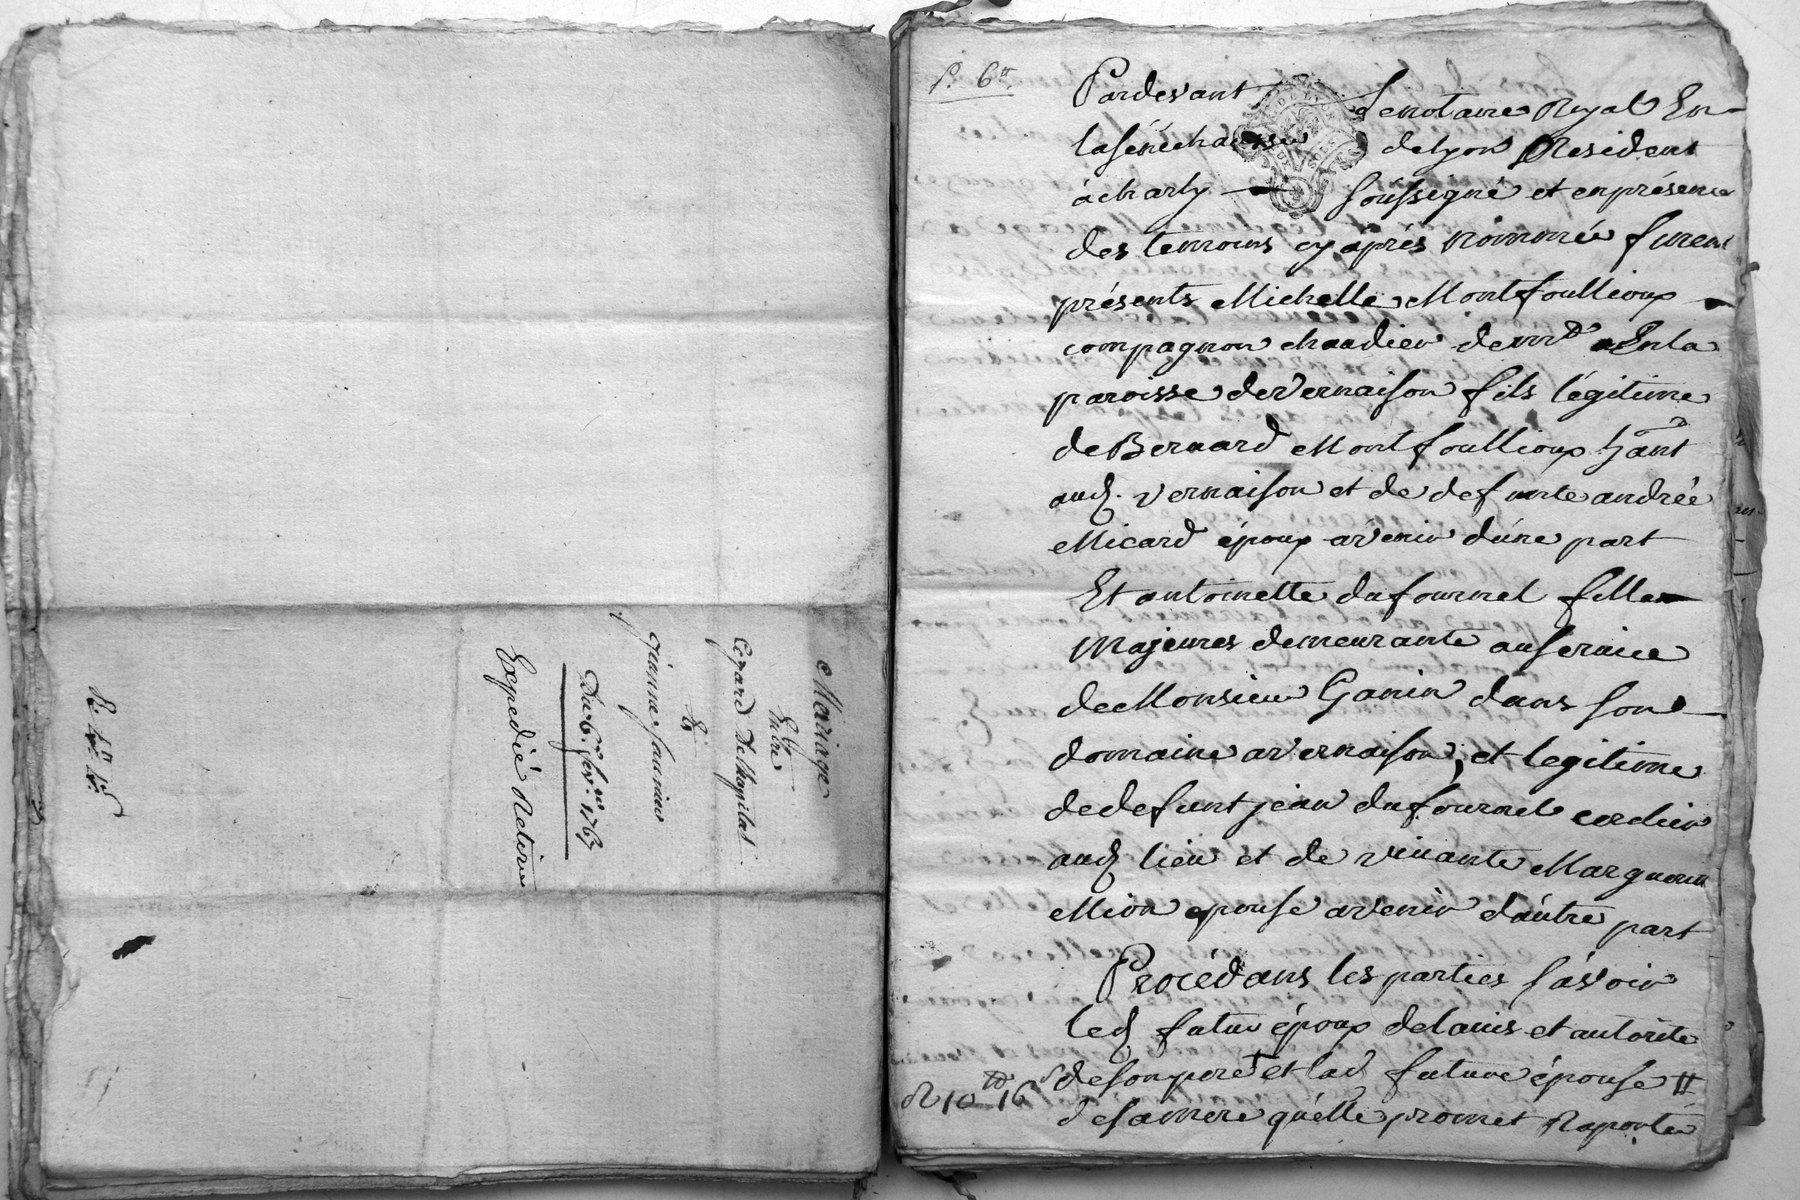 Mariage
Entre
Et
Du 6.e fev.er 1763
Expedié Retiré
P. 6tt
Pardevant Le notaire Royal En
la sénéchaussée de lyon Resident
à charly soussigné et en présence
des temoins cy après nommée furent
présents Michelle Montfoullioux
compagnon chandier dem.t En la
paroisse de Vernaison fils légitime
de Bernard Montfoullioux h.ant
aud. vernaison et de defunte andrée
Micard époux avenir d'úne part
Et antoinette du fournel fille
Majeures demeurante au service
de Monsieur Ganin dans son
domaine a vernaison, et legitime
de defunt jean du fournel cordier
aud lieu et de vivante Marguerite
Mion epouse avenir d'áutre part
Procédans les parties sávoir
led futur époux de lavis et autorité
de son pere et lad future épouse
de sa mere qu'elle promet Raporter
R 10tt 16s